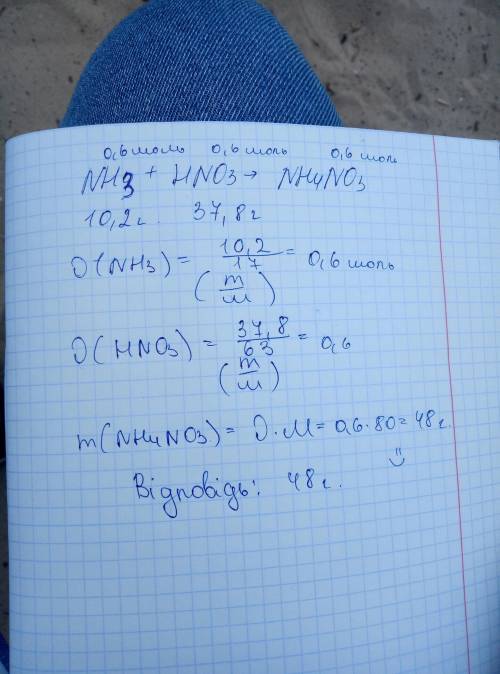 0,6 моль 0,6 моль 0,6 моль
NH3 + HNO3 → NH4NO3
10,2 г. 37,8 г
υ(NH3) = 10,2/17 = 0,6 моль
(m/M)
υ(HNO3) = 37,8/63 = 0,6
(m/M)
m(NH4NO3) = υ·M = 0,6·80 = 48 г.
Відповідь: 48 г.